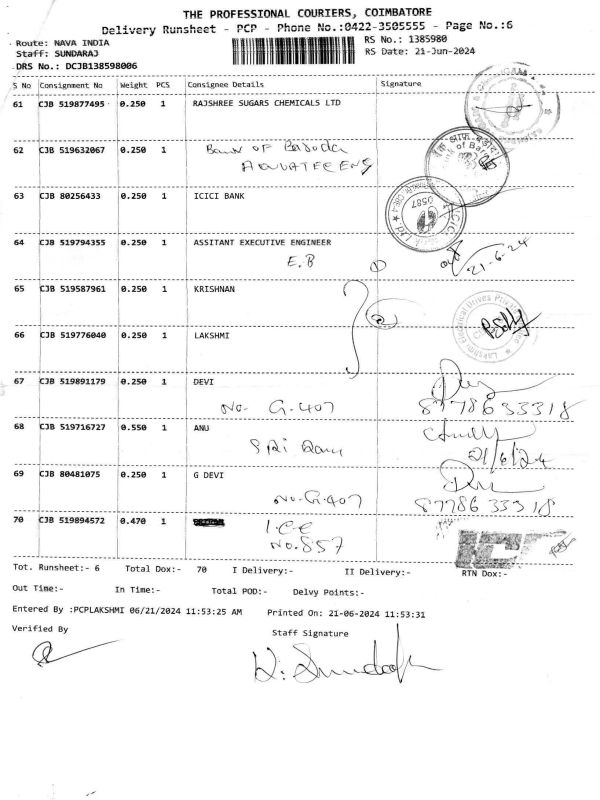 THE PROFESSIONAL COURIERS, COIMBATORE
Delivery Runsheet - PCP - Phone No.:0422-3505555 - Page No.:6
Route: NAVA INDIA RS No.: 1385980
Staff: SUNDARAJ RS Date: 21-Jun-2024
DRS No.: DCJB138598006
S No Consignment No Weight PCS Consignee Details Signature
61 CJB 519877495 0.250 1 RAJSHREE SUGARS CHEMICALS LTD
62 CJB 519632067 0.250 1 Bank OF Baroda
63 CJB 80256433 0.250 1 ICICI BANK
0587
64 CJB 519794355 0.250 1 ASSITANT EXECUTIVE ENGINEER
E.B
21-6-24
65 CJB 519587961 0.250 1 KRISHNAN
66 CJB 519776040 0.250 1 LAKSHMI
67 CJB 519891179 0.250 1 DEVI
No. G.407 8778633318
68 CJB 519716727 0.550 1 ANU
21/6/24
69 CJB 80481075 0.250 1 G DEVI
No.G.407 8778633318
70 CJB 519894572 0.470 1 I.C.C
No.857
Tot. Runsheet:- 6 Total Dox:- 70 I Delivery:- II Delivery:- RTN Dox:-
Out Time:- In Time:- Total POD:- Delvy Points:-
Entered By :PCPLAKSHMI 06/21/2024 11:53:25 AM Printed On: 21-06-2024 11:53:31
Verified By Staff Signature